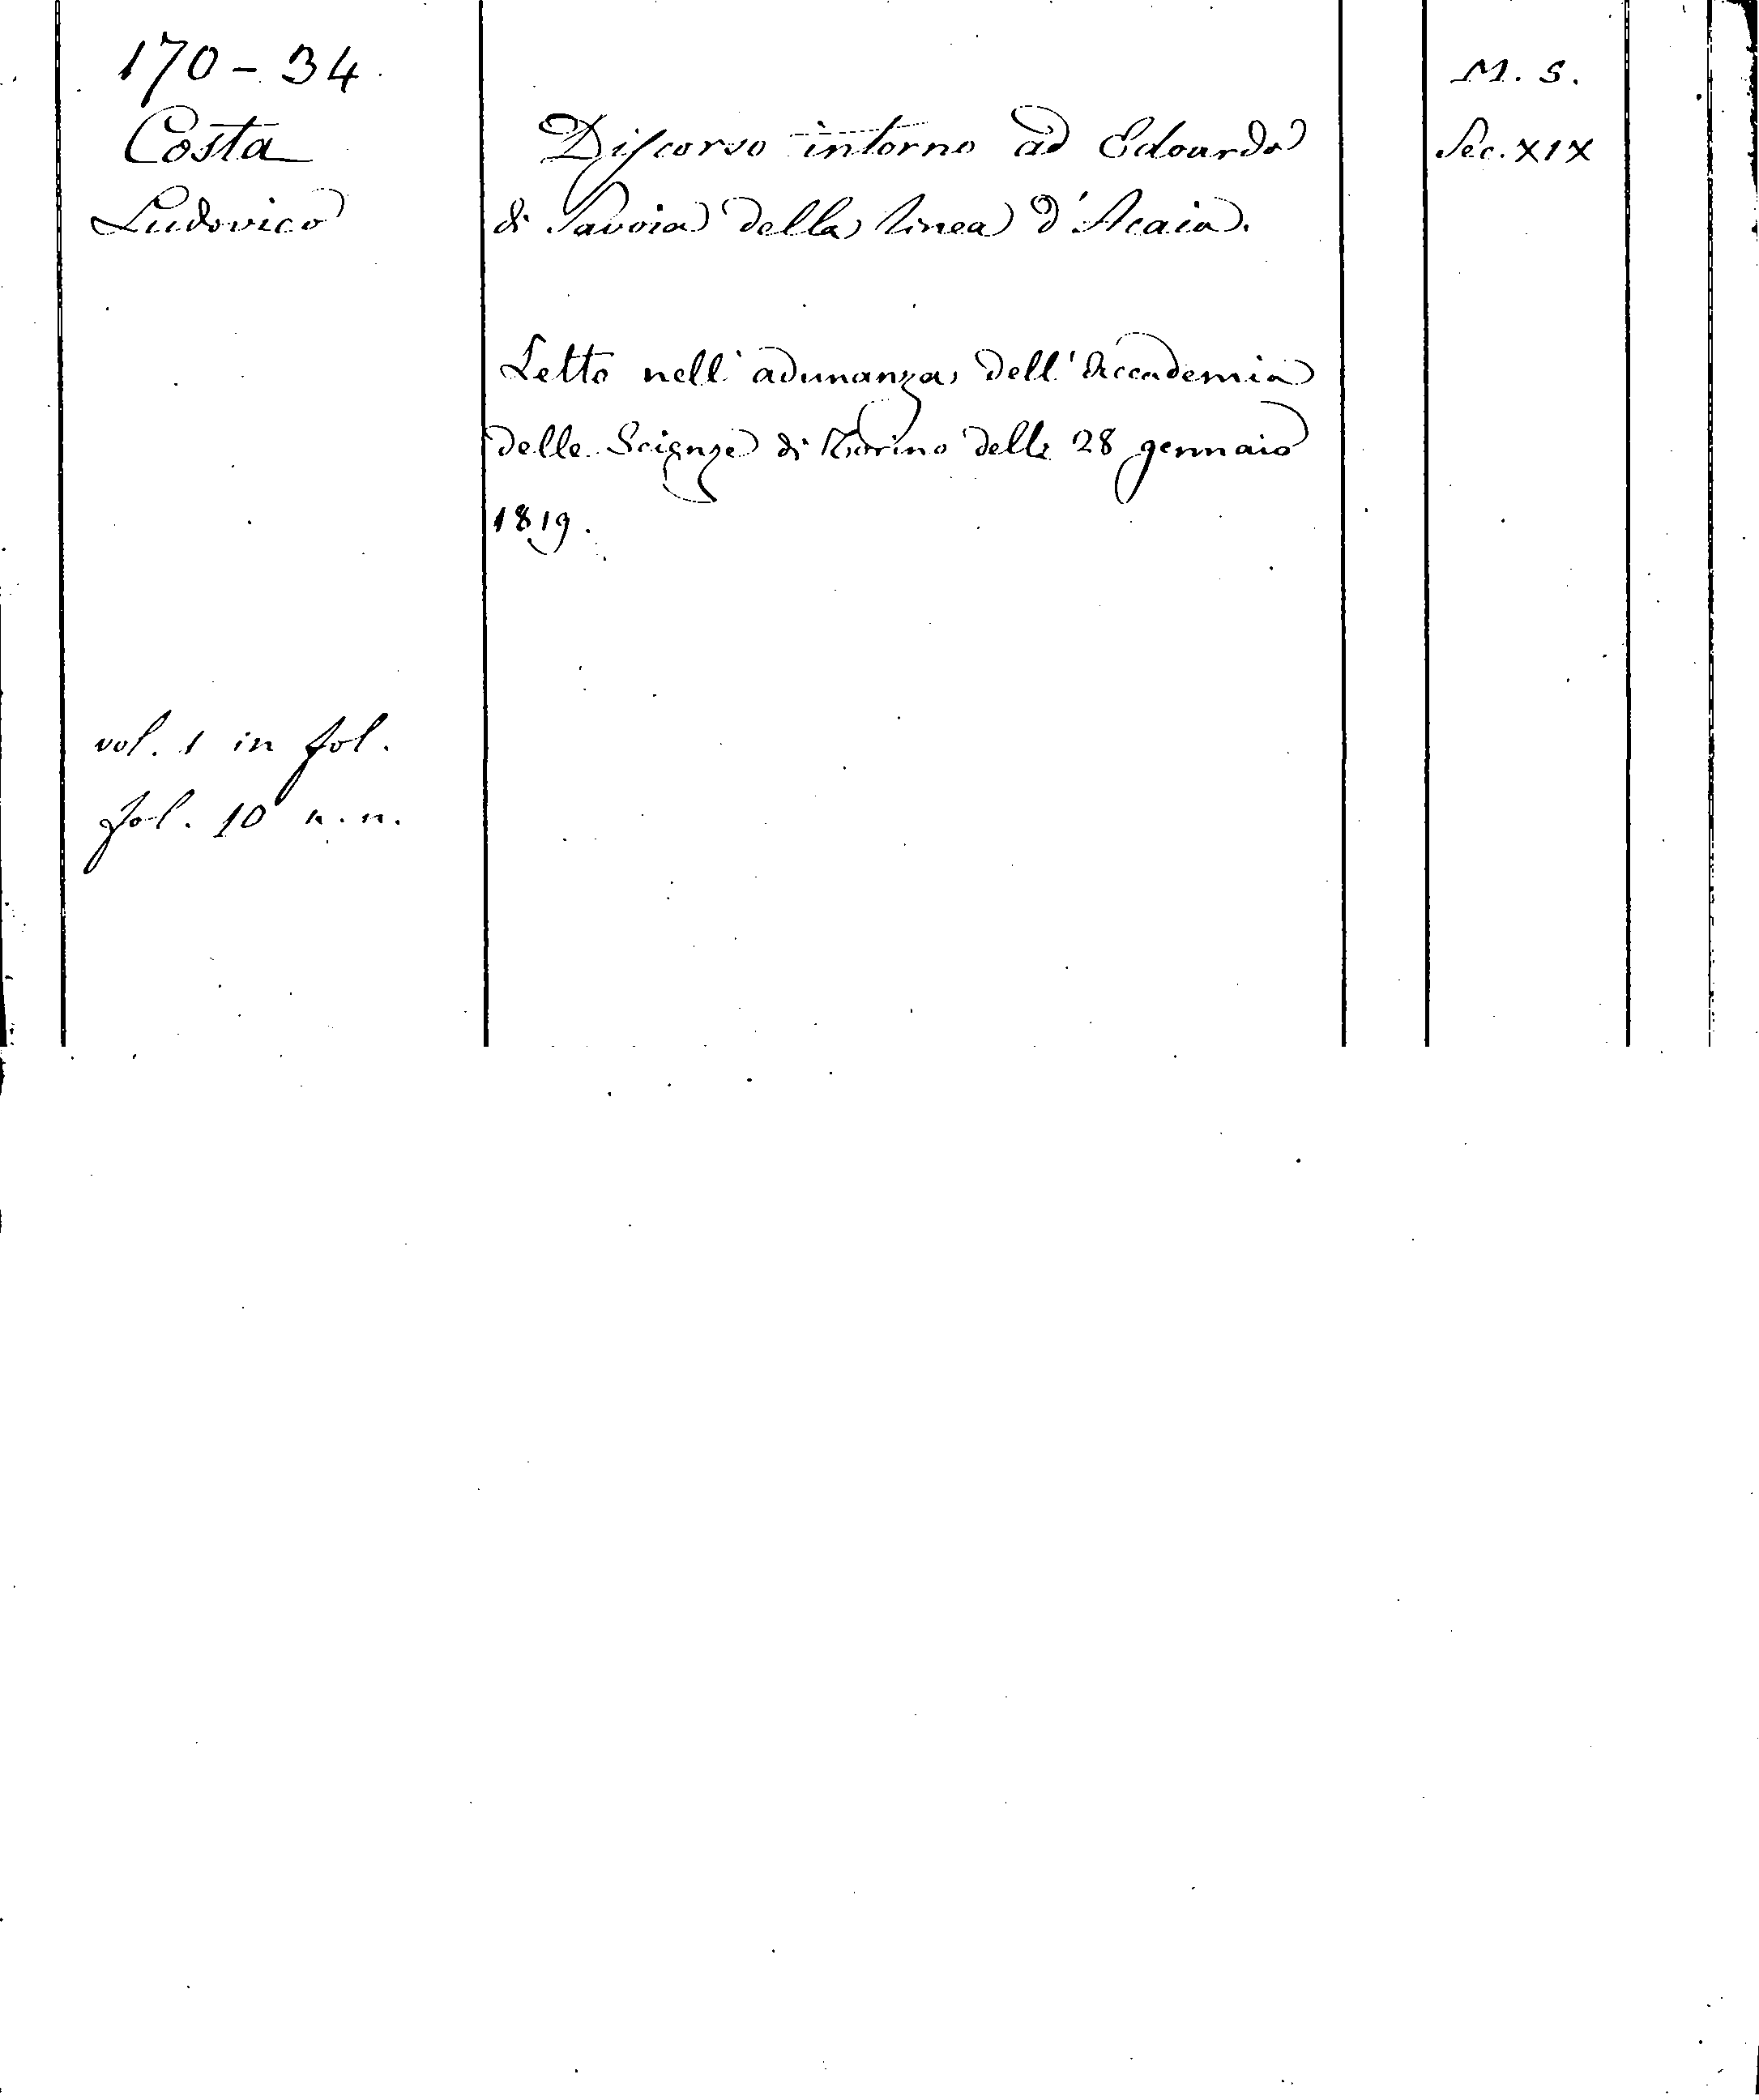 170 - 34
Costa
Ludovico
Discorso intorno ad Edoardo
di Savoia della linea d'Acaia.
Letto nell'adunanza dell'Accademia
delle Scienze di Torino delli 28 gennaio
1819.
vol. 1 in fol.
fol. 10 n.n.
M. S.
Sec. XIX